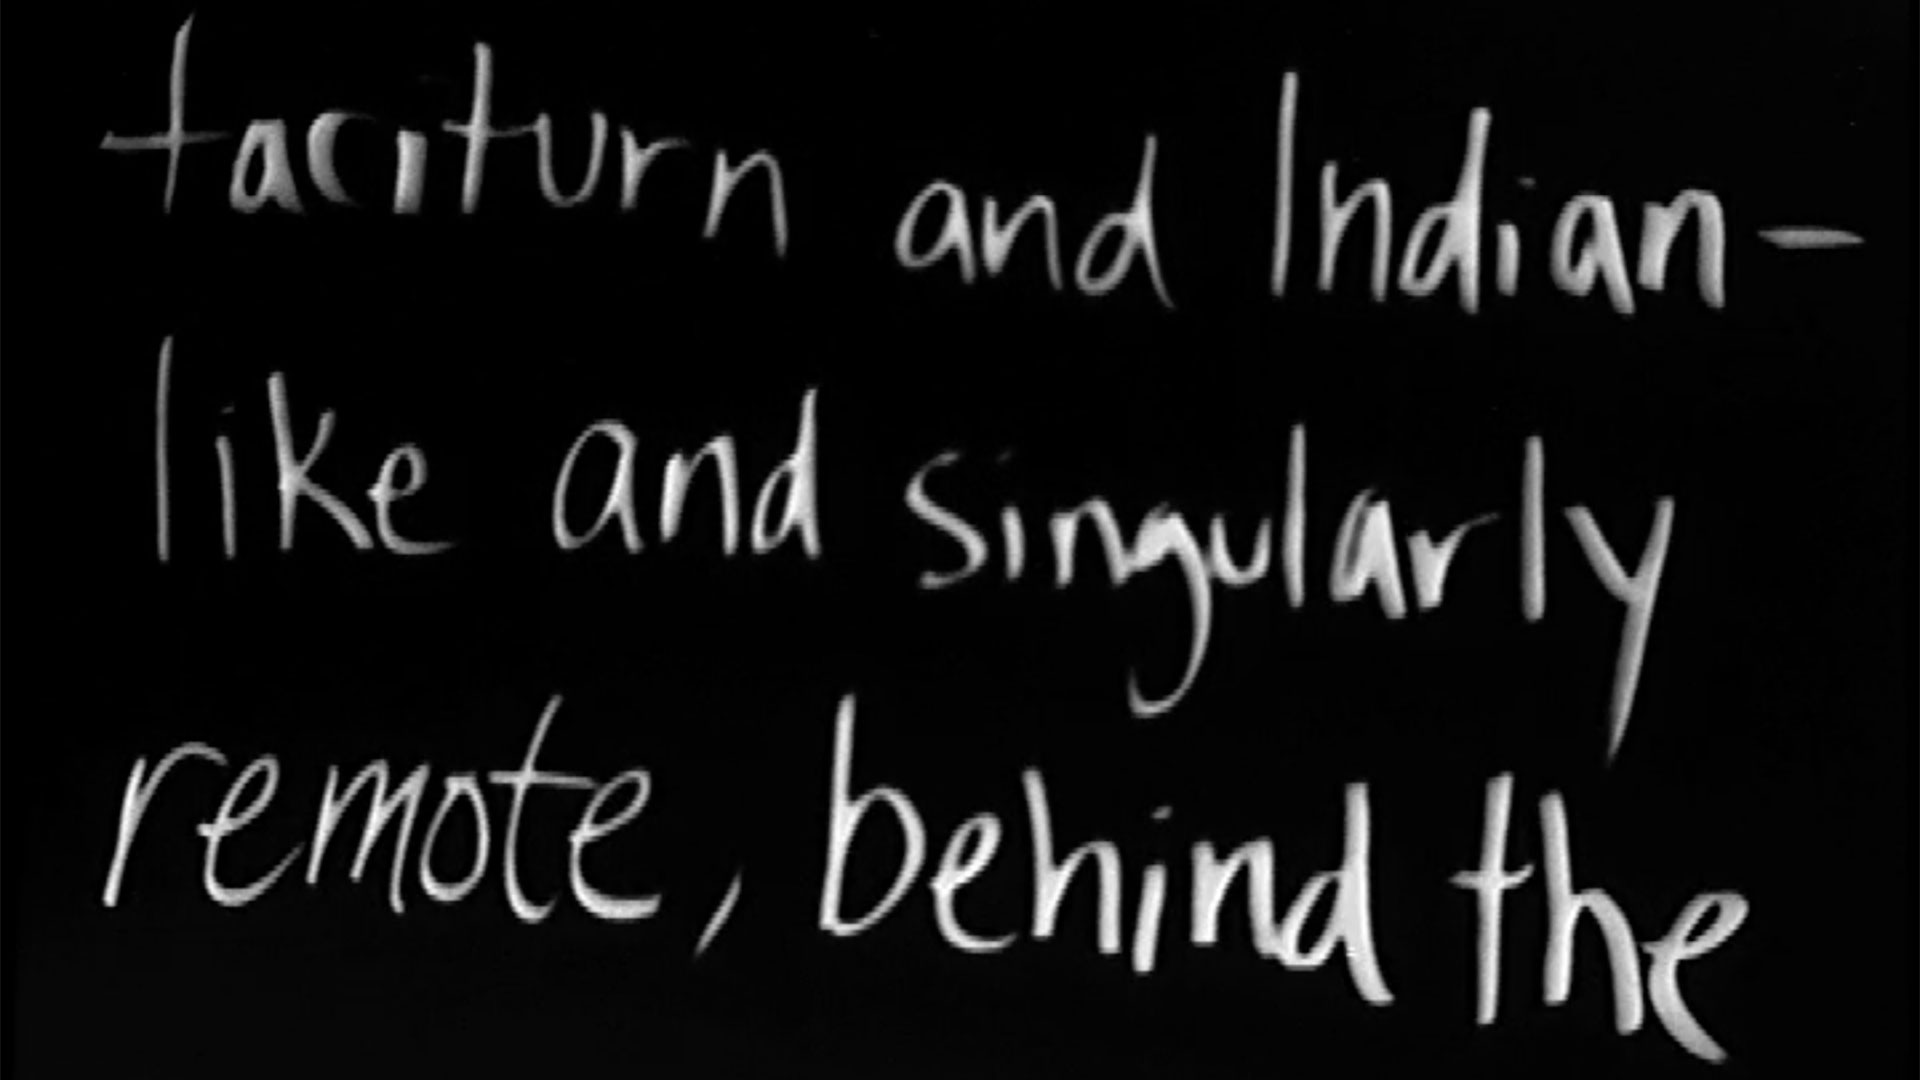 taciturn and Indian-
like and singularly
remote, behind the